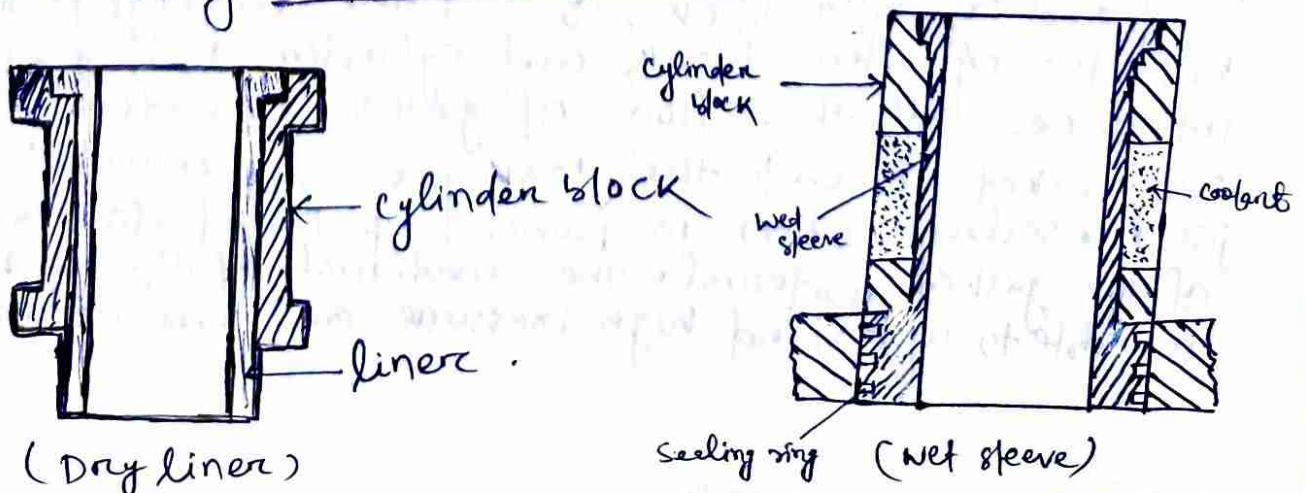 cylinder block
liner .
(Dry liner)
cylinder
block
wed
sleeve
coolant
seeling ring
(wet sleeve)